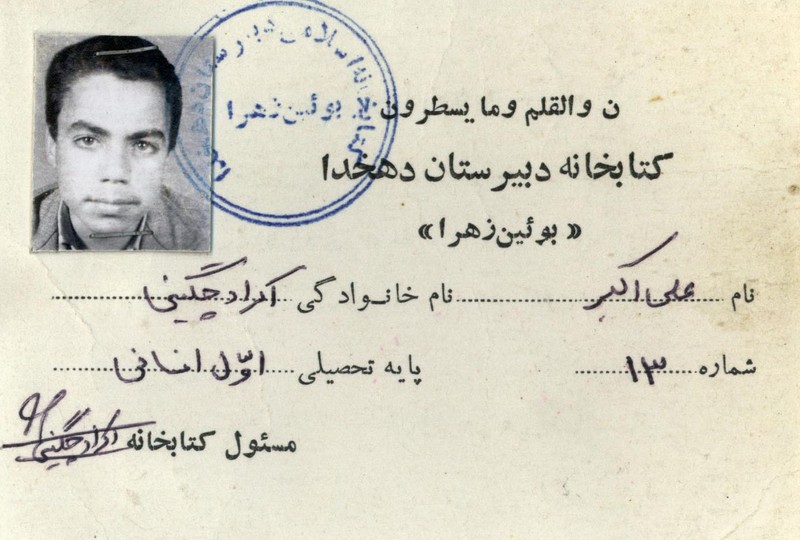 ن والقلم وما یسطرون
کتابخانه دبیرستان دهخدا
«بوئین‌زهرا»
نام علی اکبر نام خانوادگی اکراد چگینی
شماره ۱۳ پایه تحصیلی اوّل انسانی
مسئول کتابخانه اکراد چگینی
بوئین‌زهرا